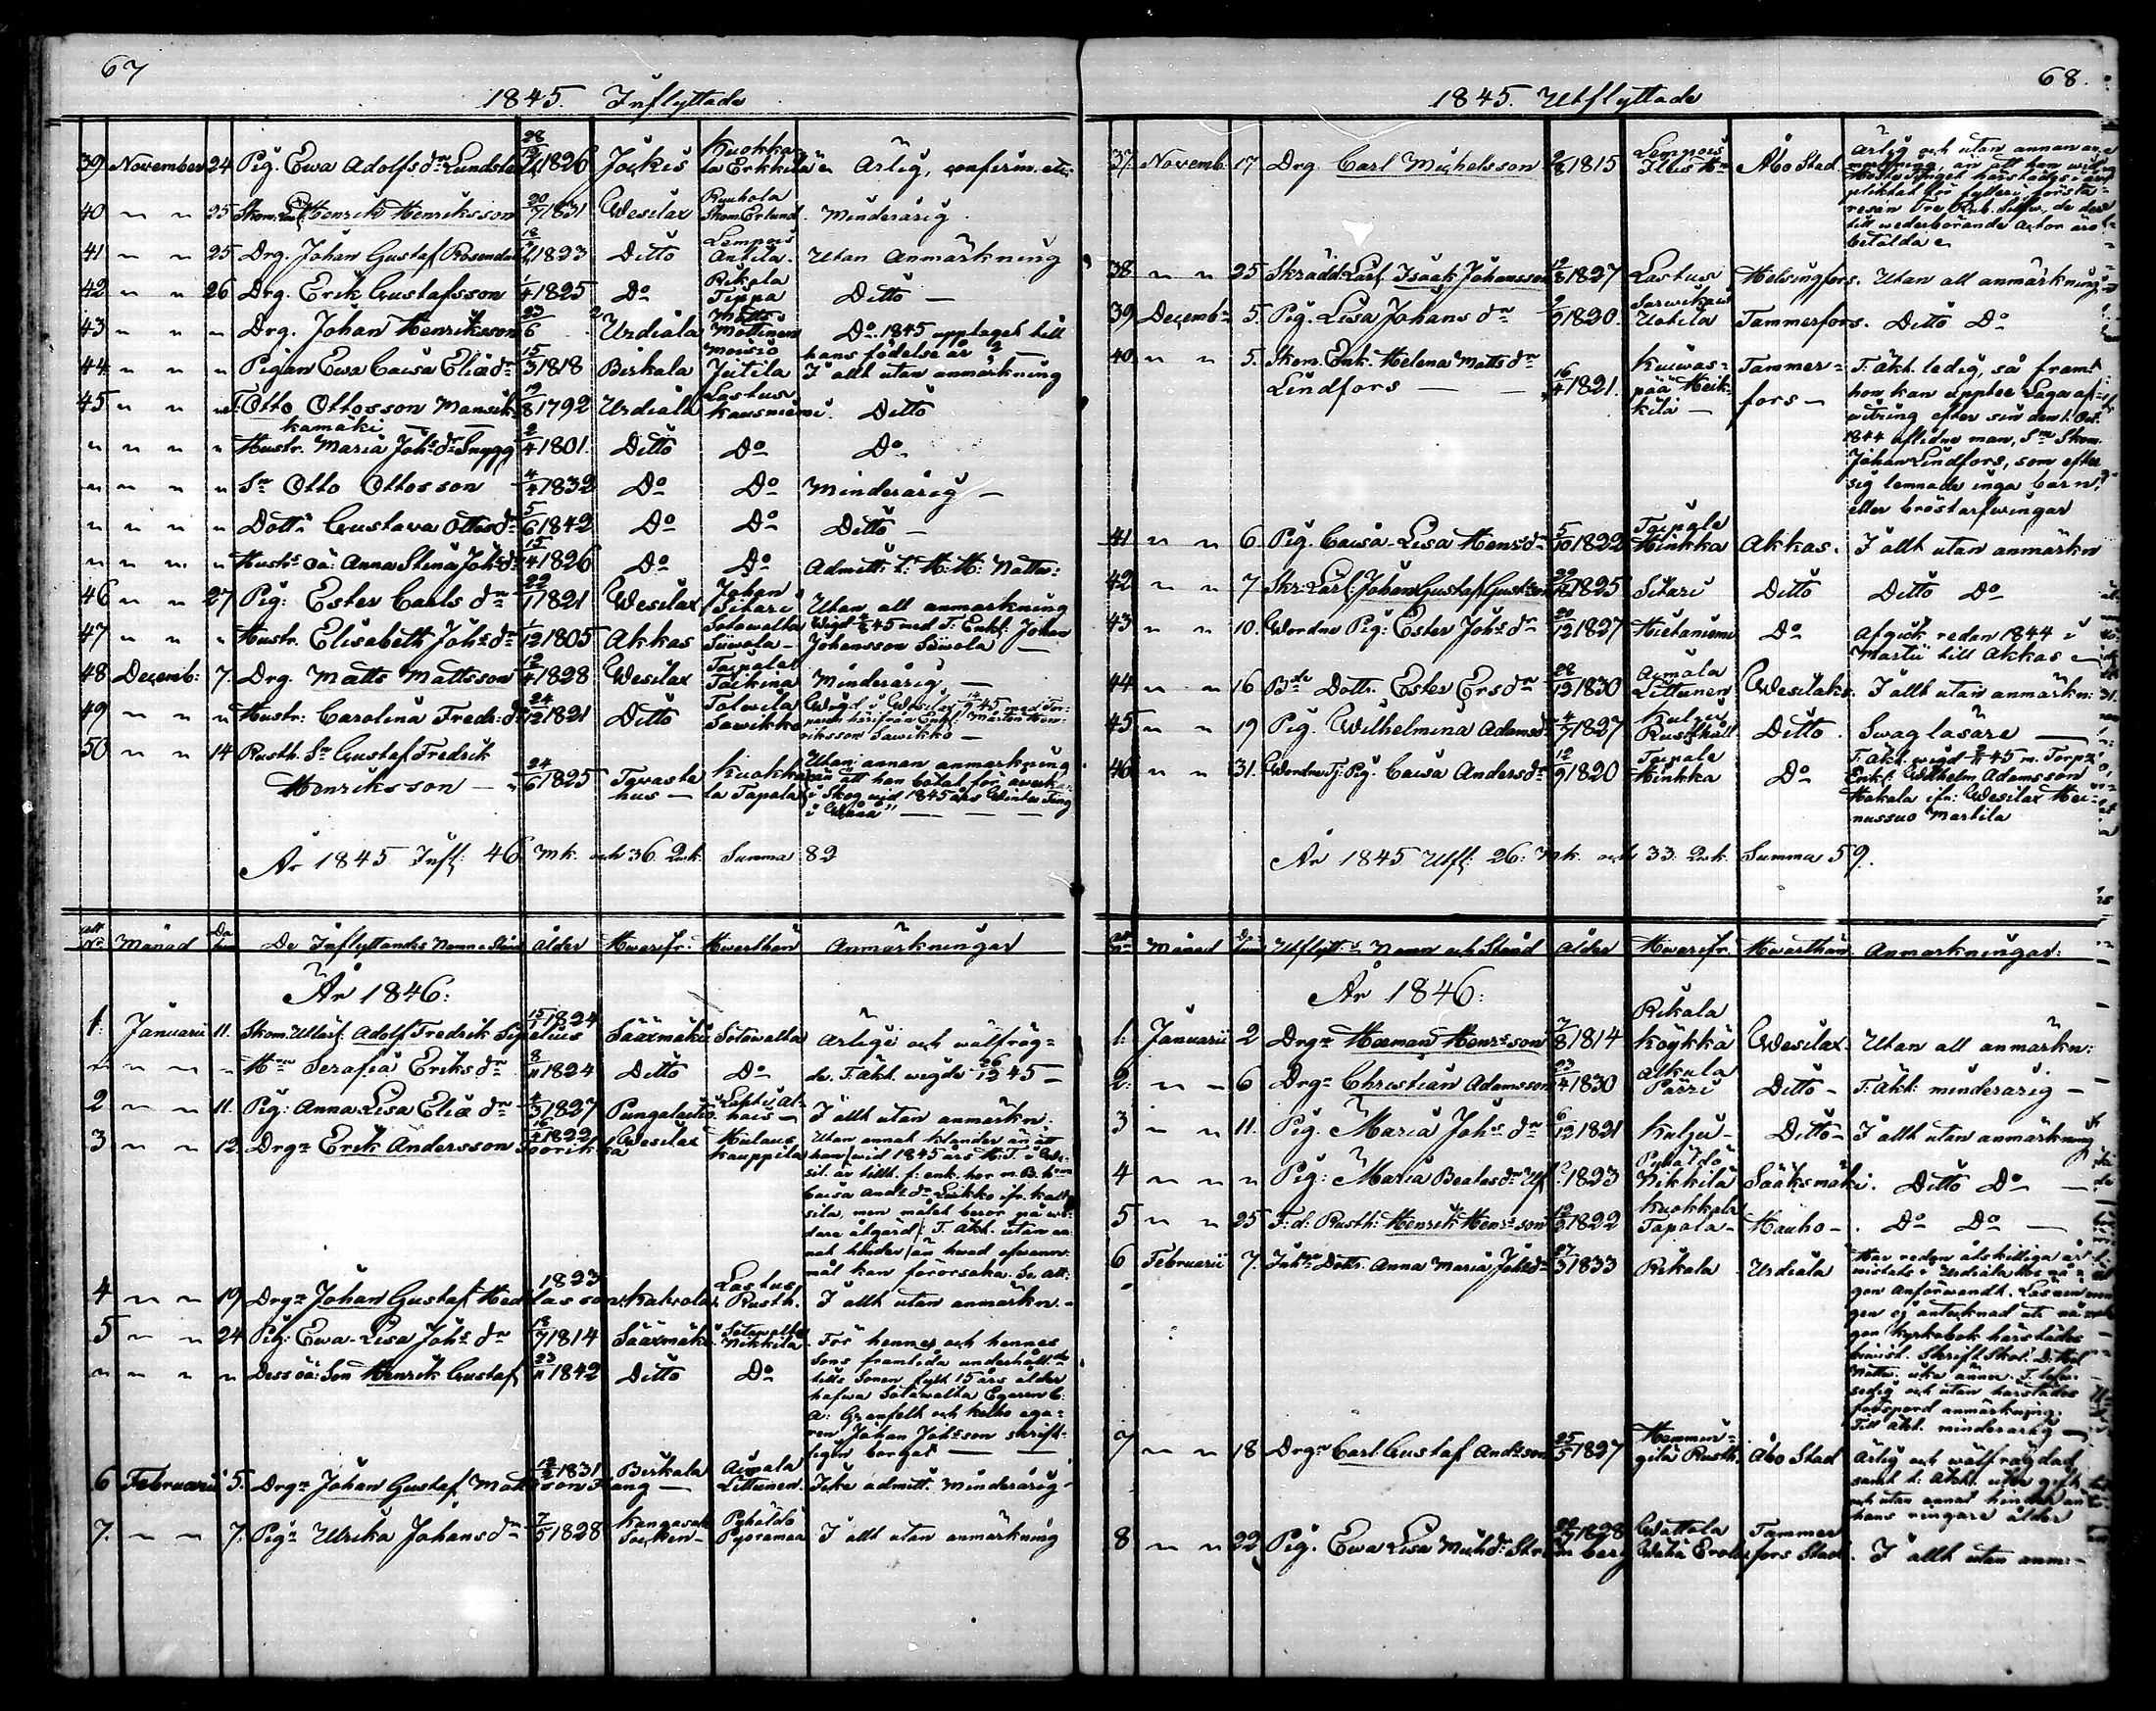 67
1845. Inflyttade
39 November 24 Pig. Ewa Adolfs dr Lundste 28/12 1826 Jockis Kuokka-
la Erkkilä Ärlig, confirm. etc.
40 " " 25 Skom. Henrik Henriksson 20/7 1831 Wesilax Ruuhola
Skom. Erlund. Minderårig.
41 " " 25 Drg. Johan Gustaf Rosendal 1823 Ditto Lempois
Antila. Utan Anmärkning
42 " " 26 Drg. Erik Gustafsson 1/4 1825 Do Rikala
Tippa Ditto —
43 " " " Drg. Johan Henriksson 23/6 Urdiala Mottinen Do. 1845 upptaget till
hans födelse år
44 " " " Pigan Ewa Caisa Eliædr 15/3 1818 Birkala Jutila I allt utan anmärkning
45 " " " Otto Ottosson Mansik- 19/8 1792 Urdiala Lastus
kamäki kausniemi. Ditto
" " " " Hustr. Maria Johs dr Snygg 2/4 1801. Ditto Do Do
" " " " Sn Otto Ottosson 4/4 1832 Do Do Minderårig —
" " " " Dottr Gustava Ottosdr 5/6 1842 Do Do Ditto —
" " " " Hustrs oä: Anna Stina Johs dr 15/4 1826 Do Do Admitt: t: H: H: Nattw:
46 " " 27 Pig: Ester Carls dr 22/1 1821 Wesilax Johan
Sitari Utan all anmärkning
47 " " " Hustr. Elisabeth Johs dr 1/12 1805 Akkas Sotawalta
Siwola — Wigd 45 med T. Enkl: Johan
Johansson Siwola —
48 Decemb: 7. Drg. Matts Mattsson 12/4 1828 Wesilax Taipale
Taikina Minderårig —
49 " " " Hustr: Carolina Fredr: dr 24/12 1821 Ditto Tolwila
Sawikko Wigd i Wesilax 45 med Tor-
paren härifrån Enkl. Mårten Hen-
riksson Sawikko —
50 " " 14 Rusth. Sn Gustaf Fredrik
Henriksson — 24/6 1825 Tavaste
hus — Kuokka
la Tapala Utan annan anmärkning
än att han botat för averkan
i Skog wid 1845 års Winter Ting
År 1845 Infl: 46 Mk. och 36 Qwk. Summa 82
Månad De Inflyttandes Namn o Stånd Ålder Hwarifr. Hwarthän Anmärkningar
År 1846:
1. Januarii 11. Skom. Utlärl. Adolf Fredrik Sipelius 15/1 1824 Sääxmäki Sotawalta Ärlige och wälfräg-
" " " " Hru Serafia Eriks dr 8/11 1824 Ditto Do de. T. Äkt. wigde 26/12 45 —
2 " " 11. Pig: Anna Lisa Eliæ dr 1827 Pungalaitio I allt utan anmärkn.
3 " " 12. Drgn Erik Andersson Soorikka 16/4 1822 Wesilax Hulaus
Kauppila Utan annat klander än att
han wid 1845 års H: T. i We-
sil. är tillt. f: enk. hor m. B. hru
Caisa Ands dr Luikko ifr. Kalt-
sila, men målet beror på wi-
dare åtgärd; T. Äkt. utan an-
nat hinder än hwad ofwann:
mål kan förorsaka. Se Att:
4 " " 19 Drgn Johan Gustaf Hed 1823 Kalvola Lastus
Rusth. I allt utan anmärkn. —
5 " " 24 Pig: Ewa-Lisa Johs dr 18/7 1814 Sääxmäki Sotawalta
Nikkilä För hennes och hennes
" " " " Dess oä: Son Henrik Gustaf 23/11 1842 Ditto Do Sons framtida underhåll
tills Sonen fyllt 15 års ålder
hafwa Sotawalta Egaren C:
A: Granfelt och Kelho ega-
ren Johan Johsson skrift-
ligen borgat —
6 Februarii 5. Drgn Johan Gustaf Mattsson Frang — 12/2 1831 Birkala Aimala
Littunen. Icke admitt. minderårig.
7. " " 7. Pign Ulrika Johans dr 7/5 1828 Kangasala
Socken — Pyhäldö
Pyöramaa I allt utan anmärkning
68.
1845. Utflyttade
37 Novemb. 17 Drg. Carl Michelsson 2/8 1815 Lempois Åbo Stad. Ärlig och utan annan an-
märkning, än att han wid
Höste Tinget härstädes är
pliktad för fylleri första
resan Tre Rub. Silfwr, de der
till wederbörande actor äro
betalda
38 " " 25 Skrädd. Lärl. Isaak Johansson 12/8 1827 Lastus Helsingfors. Utan all anmärkning
39 Decembr 5. Pig. Lisa Johans dr 2/9 1820. Sarwikais
Uotila Tammerfors. Ditto Do
40 " " 5. Skom. Enk. Helena Matts dr
Lindfors — 16/4 1821. Kuiwas-
pää Heik-
kilä — Tammer-
fors — T. Äkt. ledig, så framt
hon kan upptee Laga af-
witring efter sin den 1. Oct.
1844 aflidne man, Sn Skom.
Johan Lindfors, som efter
sig lemnade inga barn,
eller bröstarfwingar
41 " " 6. Pig. Caisa-Lisa Hensdr 5/10 1822 Taipale
Hinkka Akkas. I allt utan anmärkn
42 " " 7 Skr: Lärl: Johan Gustaf Gustsson 1825 Sitari Ditto Ditto Do
43 " " 10. Wordne Pig: Ester Johs dr 20/12 1827 Hietaniemi Do Afgick redan 1844 i
Martii till Akkas —
44 " " 16 Bde Dottr. Ester Ersdr 28/12 1830 Aimala
Littunen Wesilaks. I allt utan anmärkn:
45 " " 19 Pig. Wilhelmina Adamsdr 4/7 1827 Kulju
Rusthåll Ditto. Swag läsare —
46 " " 31. Wordne Tj: Pig. Caisa Andersdr 12/9 1820 Taipale
Hinkka Do T. Äkt. wigd 45 m. Torp.
Enkl. Wilhelm Adamsson
Makala ifr: Wesilax Hei-
nussuo Martila
År 1845 Utfl: 26: Mk. och 33. Qwk. Summa 59.
Månad Utflytt:s Namn och Stånd Ålder Hwarifr. Hwarthän Anmärkningar:
År 1846:
1. Januarii 2 Drgn Herman Henrsson 7/8 1814 Rikala
Köykkä Wesilax Utan all anmärkn:
2. " " 6 Drgn Christian Adamsson 23/4 1830 Alkula
Pärri Ditto — T. Äkt: minderårig —
3 " " 11. Pig. Maria Johs dr 6/12 1821 Kulju — Ditto — I allt utan anmärkning
4 " " " Pig: Maria Beatas dr Ulf 1823 Pyhäldö
Nikkilä Sääksmäki. Ditto Do —
5 " " 25 F: d: Rusth: Henrik Henrsson 1822 Kuokkala
Tapala — Hauho — Do Do —
6 Februarii 7. Dottr. Anna Maria Johsdr 27/3 1833 Rikala Urdiala Har redan åtskilliga år
wistats i Urdiala hos nå-
gon Anförwandt. Läsnin-
gen ej antecknad uti nå-
gon Kyrkobok härstädes
sedig och utan härstädes
försport anmärkning.
Till äkt. minderårig —
7 " " 18 Drgn Carl Gustaf Andsson 25/5 1827 Hemmin-
gilä Rusth. Åbo Stad Ärlig och wälfrägdad
samt t. Äkt. utan gift
och utan annat hinder än
hans ringare ålder
8 " " 22 Pig. Ewa Lisa Michdr Strömberg 1828 Wattola Tammer
fors Stad. I allt utan anm: —